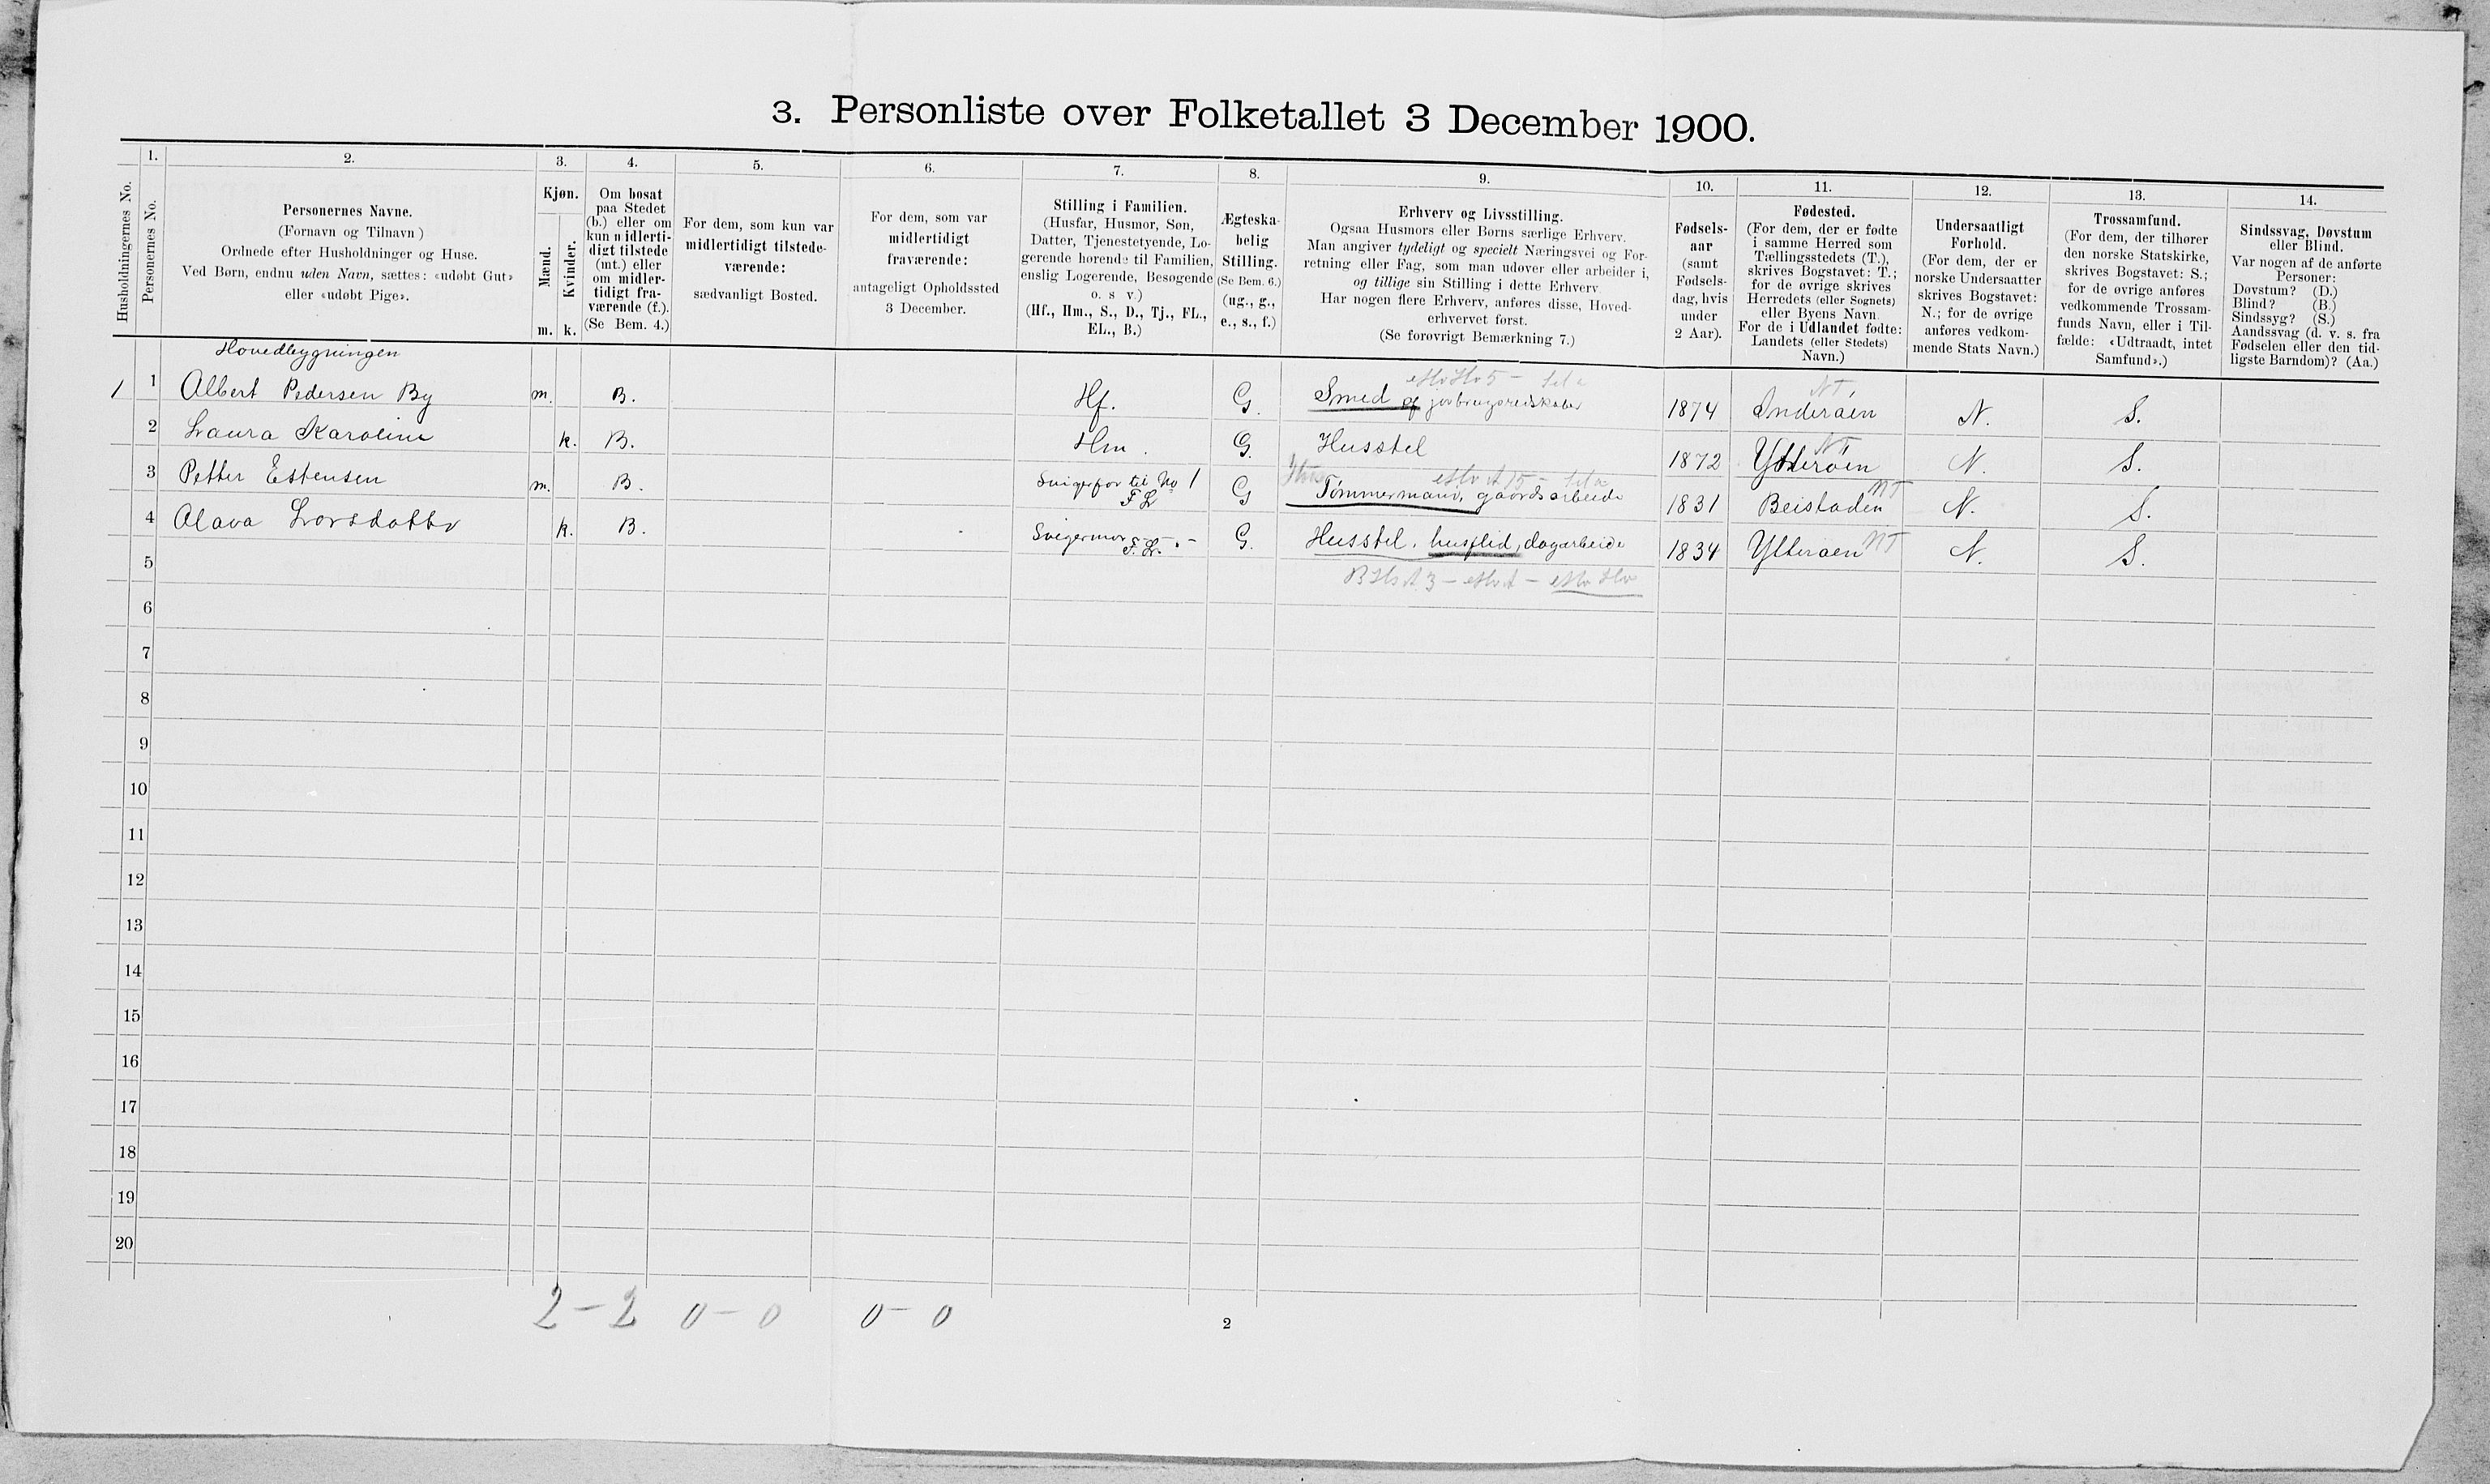 3. Personliste over Folketallet 3 December 1900.
Husholdningernes No.
1.
Personernes No.
2.
Personernes Navne.
(Fornavn og Tilnavn)
Ordnede efter Husholdninger og Huse.
Ved Børn, endnu uden Navn, sættes: «udøbt Gut»
eller «udøbt Pige».
3.
Kjøn.
Mænd.
Kvinder.
m. k.
4.
Om bosat
paa Stedet
(b.) eller om
kun midlerti-
digt tilstede
(mt.) eller
om midler-
tidigt fra-
værende (f.).
(Se Bem. 4.)
5.
For dem, som kun var
midlertidigt tilstede-
værende:
sædvanligt Bosted.
6.
For dem, som var
midlertidigt
fraværende:
antageligt Opholdssted
3 December.
7.
Stilling i Familien.
(Husfar, Husmor, Søn,
Datter, Tjenestetyende, Lo-
gerende hørende til Familien,
enslig Logerende, Besøgende
o. s v.)
(Hf., Hm., S., D., Tj., FL.,
EL., B.)
8.
Ægteska-
belig
Stilling.
(Se Bem. 6.)
(ug., g.,
e., s., f.)
9.
Erhverv og Livsstilling.
Ogsaa Husmors eller Børns særlige Erhverv.
Man angiver tydeligt og specielt Næringsvei og For-
retning eller Fag, som man udøver eller arbeider i,
og tillige sin Stilling i dette Erhverv
Har nogen flere Erhverv, anføres disse, Hoved-
erhvervet først.
(Se forøvrigt Bemærkning 7.)
10.
Fødsels-
aar
(samt
Fødsels-
dag, hvis
under
2 Aar).
11.
Fødested.
(For dem, der er fødte
i samme Herred som
Tællingsstedets (T.),
skrives Bogstavet: T.;
for de øvrige skrives
Herredets (eller Sognets)
eller Byens Navn
For de i Udlandet fødte:
Landets (eller Stedets)
Navn.)
12.
Undersaatligt
Forhold.
(For dem, der er
norske Undersaatter
skrives Bogstavet:
N.; for de øvrige
anføres vedkom-
mende Stats Navn.)
13.
Trossamfund.
(For dem, der tilhører
den norske Statskirke,
skrives Bogstavet: S.;
for de øvrige anføres
vedkommende Trossam-
funds Navn, eller i Til-
fælde: «Udtraadt, intet
Samfund».)
14.
Sindssvag, Døvstum
eller Blind.
Var nogen af de anførte
Personer:
Døvstum? (D.)
Blind? (B.)
Sindssyg? (S.)
Aandssvag (d. v. s. fra
Fødselen eller den tid-
ligste Barndom)? (Aa.)
Hovedbygningen
1 1 Albert Pedersen By m. B. Hf. G. Smed af jorbrugsredskaber 1874 Inderøen NT N. S.
2 Laura Karoline k. B. Hm. G. Husstel 1872 Ytterøen NT N. S.
3 Petter Estensen m. B. Svigerfar til No 1 FL G Tømmermand, gaardsarbeide 1831 Beistaden NT N. S.
4 Olava Larsdatter k. B. Svigermor F.L. G. Husstel, husflid, dagarbeide 1834 Ytterøen NT N. S.
5
6
7
8
9
10
11
12
13
14
15
16
17
18
19
20
2 – 2 0 – 0 0 – 0
2